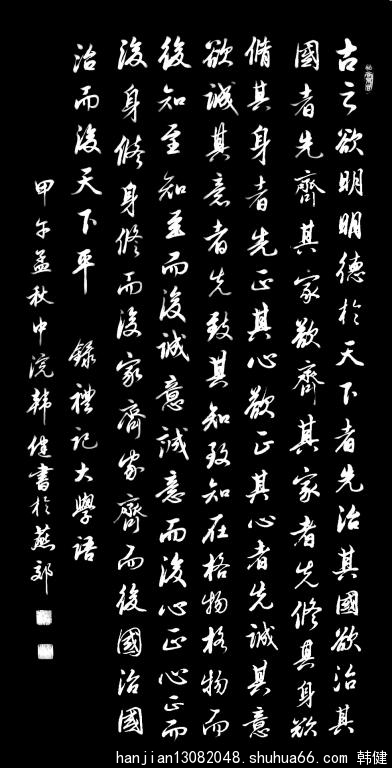 古云欲明明德於天下者先治其國欲治其
國者先齊其家欲齊其家者先修其身欲
脩其身者先正其心欲正其心者先誠其意
欲誠其意者先致其知致知在格物格物而
後知至知至而後誠意誠意而後心正心正而
後身修身修而後家齊家齊而後國治國
治而後天下平 錄禮記大學語
甲午孟秋中浣韓健書於燕郊
hanjian13082048.shuhua66.com 韩健